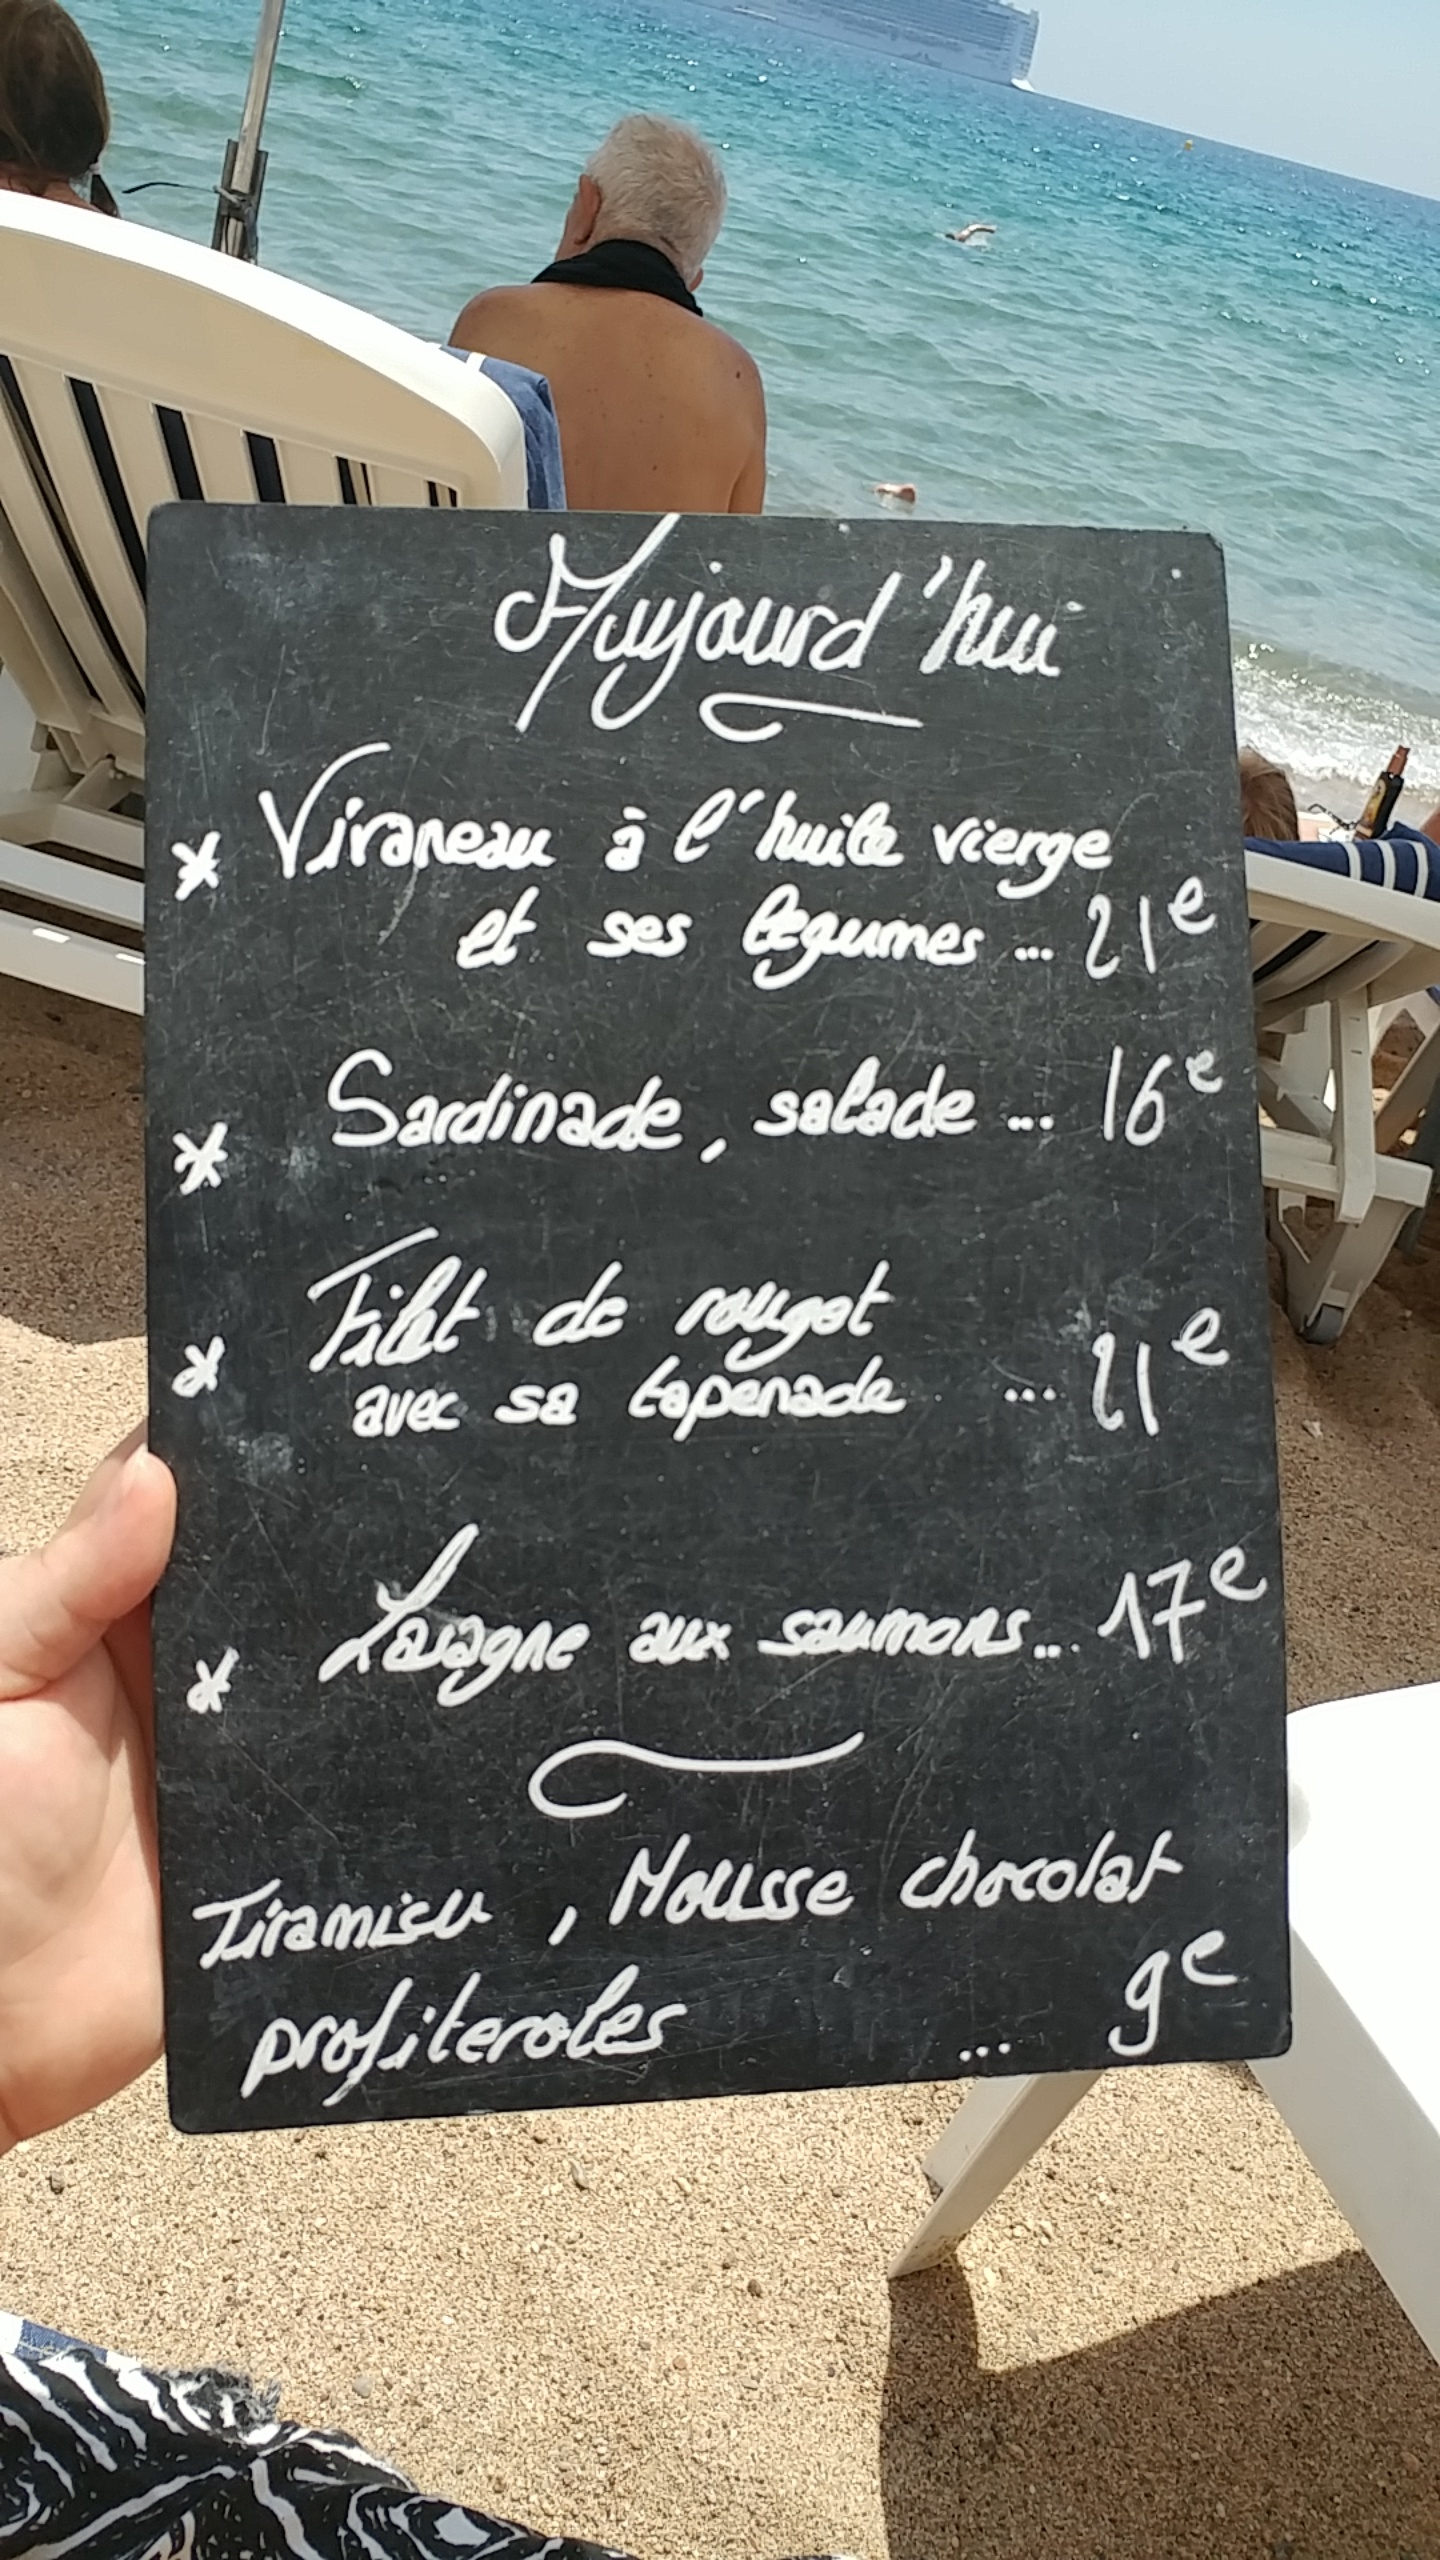 Aujourd'hui
* Viraneau à l'huile vierge
et ses légumes ... 21e
* Sardinade, salade ... 16e
* Filet de rouget
avec sa tapenade ... 21e
* Lasagne aux saumons... 17e
Tiramisu, Mousse chocolat
profiteroles ... 9e